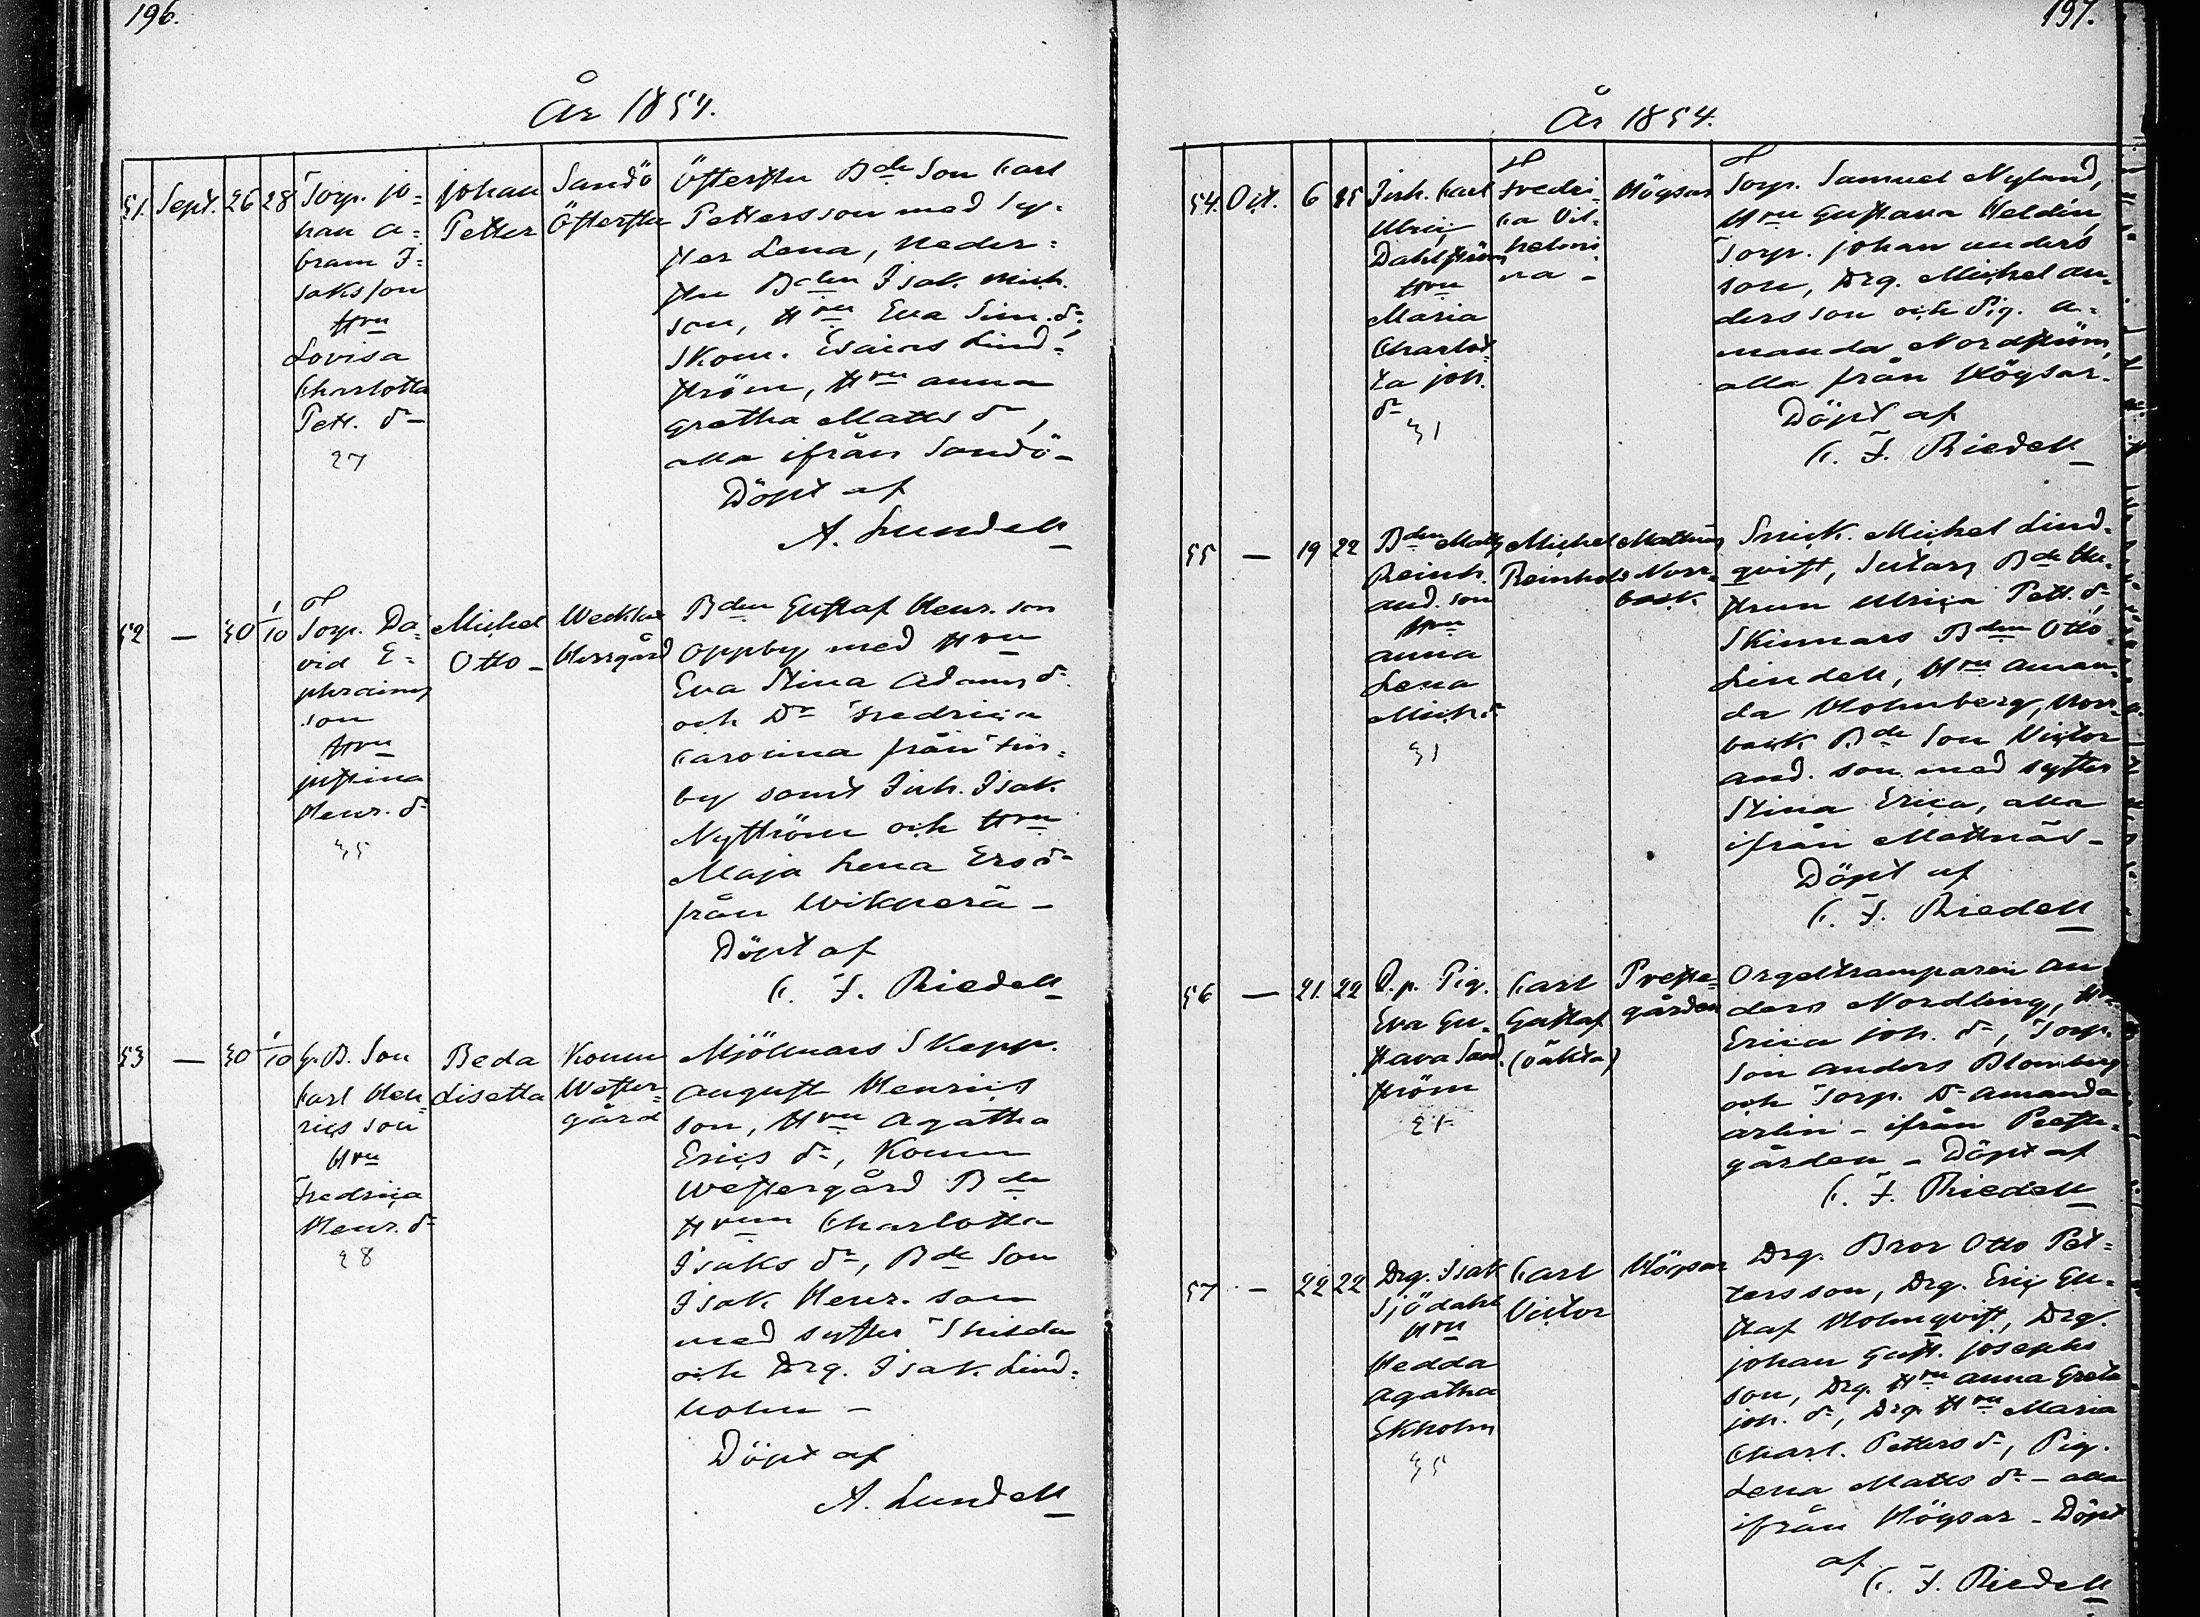 196.
År 1854.
51. Sept. 26 28
Torp. Jo=
han A=
bram I=
saksson
Hru
Lovisa
Charlotta
Pett. dr
27
Johan
Petter
Sandö
Öfterstu
Öfterstu Bde Son Carl
Pettersson med Sys=
ter Lena, Neder=
stu Bden Isak Mich.
son, Hru Eva Sim. dr
Skom. Esaias Lind=
ström, Hru Anna
Gretha Matts dr,
alla ifrån Sandö -
Döpt af
A. Lundell
52 — 30 1/10
Torp. Da=
vid E=
phraims
son
Hru
Justina
Henr. dr
35
Michel
Otto -
Herrgård
Bden Gustaf Henr. son
Oppby med Hru
Eva Stina Adams dr
och Dr Fredrica
Carolina från Fin=
by samt Inh. Isak
Nyström och Hru
Maja Lena Ers dr
från Wikperä -
Döpt af
C. F. Riedell
53 — 30 1/10
G. B. Son
Carl Hen=
rics son
Hru
Fredrica
Henr. dr
28
Beda
Lisetta
Komm
Wester=
gård
Mjölnars Skepp.
August Henrics
son, Hru Agatha
Erics dr, Komm
Westergård Bde
Hrun Charlotta
Isaks dr, Bde Son
Isak Henr. son
med syster
och Drg. Isak Lind=
holm -
Döpt af
A. Lundell
197.
År 1854.
54. Oct. 6 25
Inh. Carl
Ulric
Dahlström
Hru
Maria
Charlot=
ta Joh.
dr
31
Fredri=
ca Vil=
helmi
na -
Högsar
Torp. Samuel Nylund,
Hru Gustava Heldin,
Torp. Johan Anders
son, Drg. Michel An=
dersson och Pig. A=
manda Nordström,
alla från Högsar.
Döpt af
C. F. Riedell
55 — 19 22
Bden Matts
Reinh.
And. son
Hru
Anna
Lena
Mich. dr
31
Michel
Reinhold
Mattnäs
Norr=
back
Snick. Michel Lind=
qvist, Sutars Bde Hu=
strun Ulrica Pett. dr,
Skinnars Bden Otto
Lindell, Hru Aman=
da Holmberg, Norr=
back Bde Son Victor
And. son med syster
Stina Erica, alla
ifrån Mattnäs -
Döpt af
C. F. Riedell
56 — 21. 22
Q. p. Pig.
Eva Gu=
stava Sand=
ström
21
Carl
Gustaf
(oäkta)
Preste=
gården
Orgeltramparen An=
ders Nordling, Hru
Erica Joh. dr, Torp.
Son Anders Blomberg
och Torp. Dr Amanda
Arlin - ifrån Preste=
gården - Döpt af
C. F. Riedell
57 — 22 22
Drg. Isak
Sjödahl
Hru
Hedda
Agatha
Ekholm
35
Carl
Victor
Högsar
Drg. Bror Otto Pet=
tersson, Drg. Eric Gu=
staf Holmqvist, Drg.
Johan Gust. Josephs
son, Drg. Hru Anna Greta
Joh. dr, Drg. Hru Maria
Charl. Petters dr, Pig.
Lena Matts dr - alla
ifrån Högsar - Döpt
af
C. F. Riedell